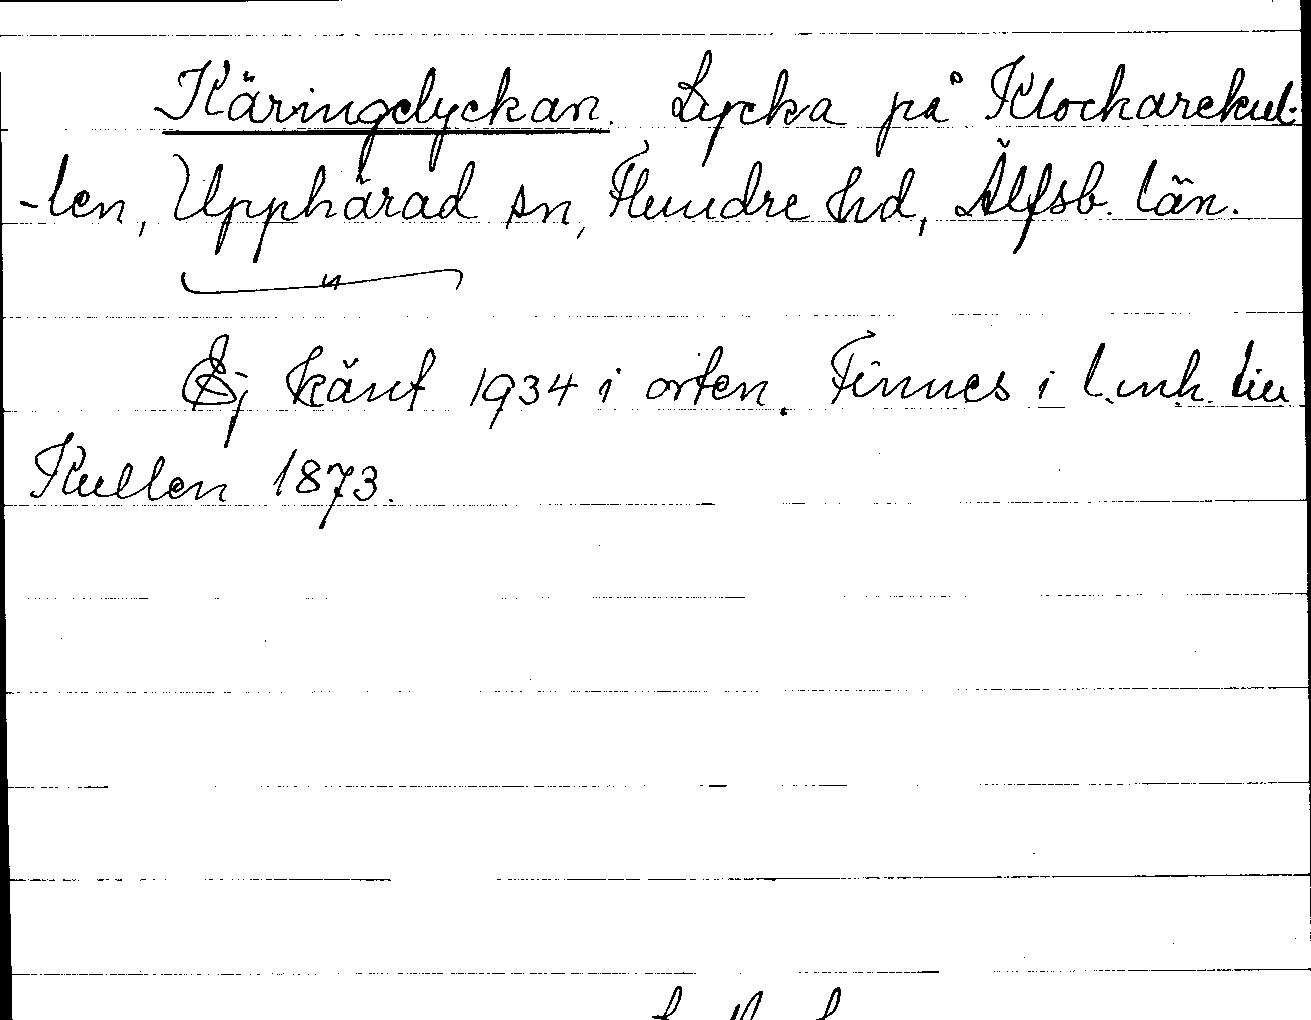 Käringelyckan. Lycka på Klockarekul-
-len, Upphärad sn, Flundre hd, Älfsb. län.
Ej känt 1934 i orten. Finnes i l.mh. till
Kullen 1873.